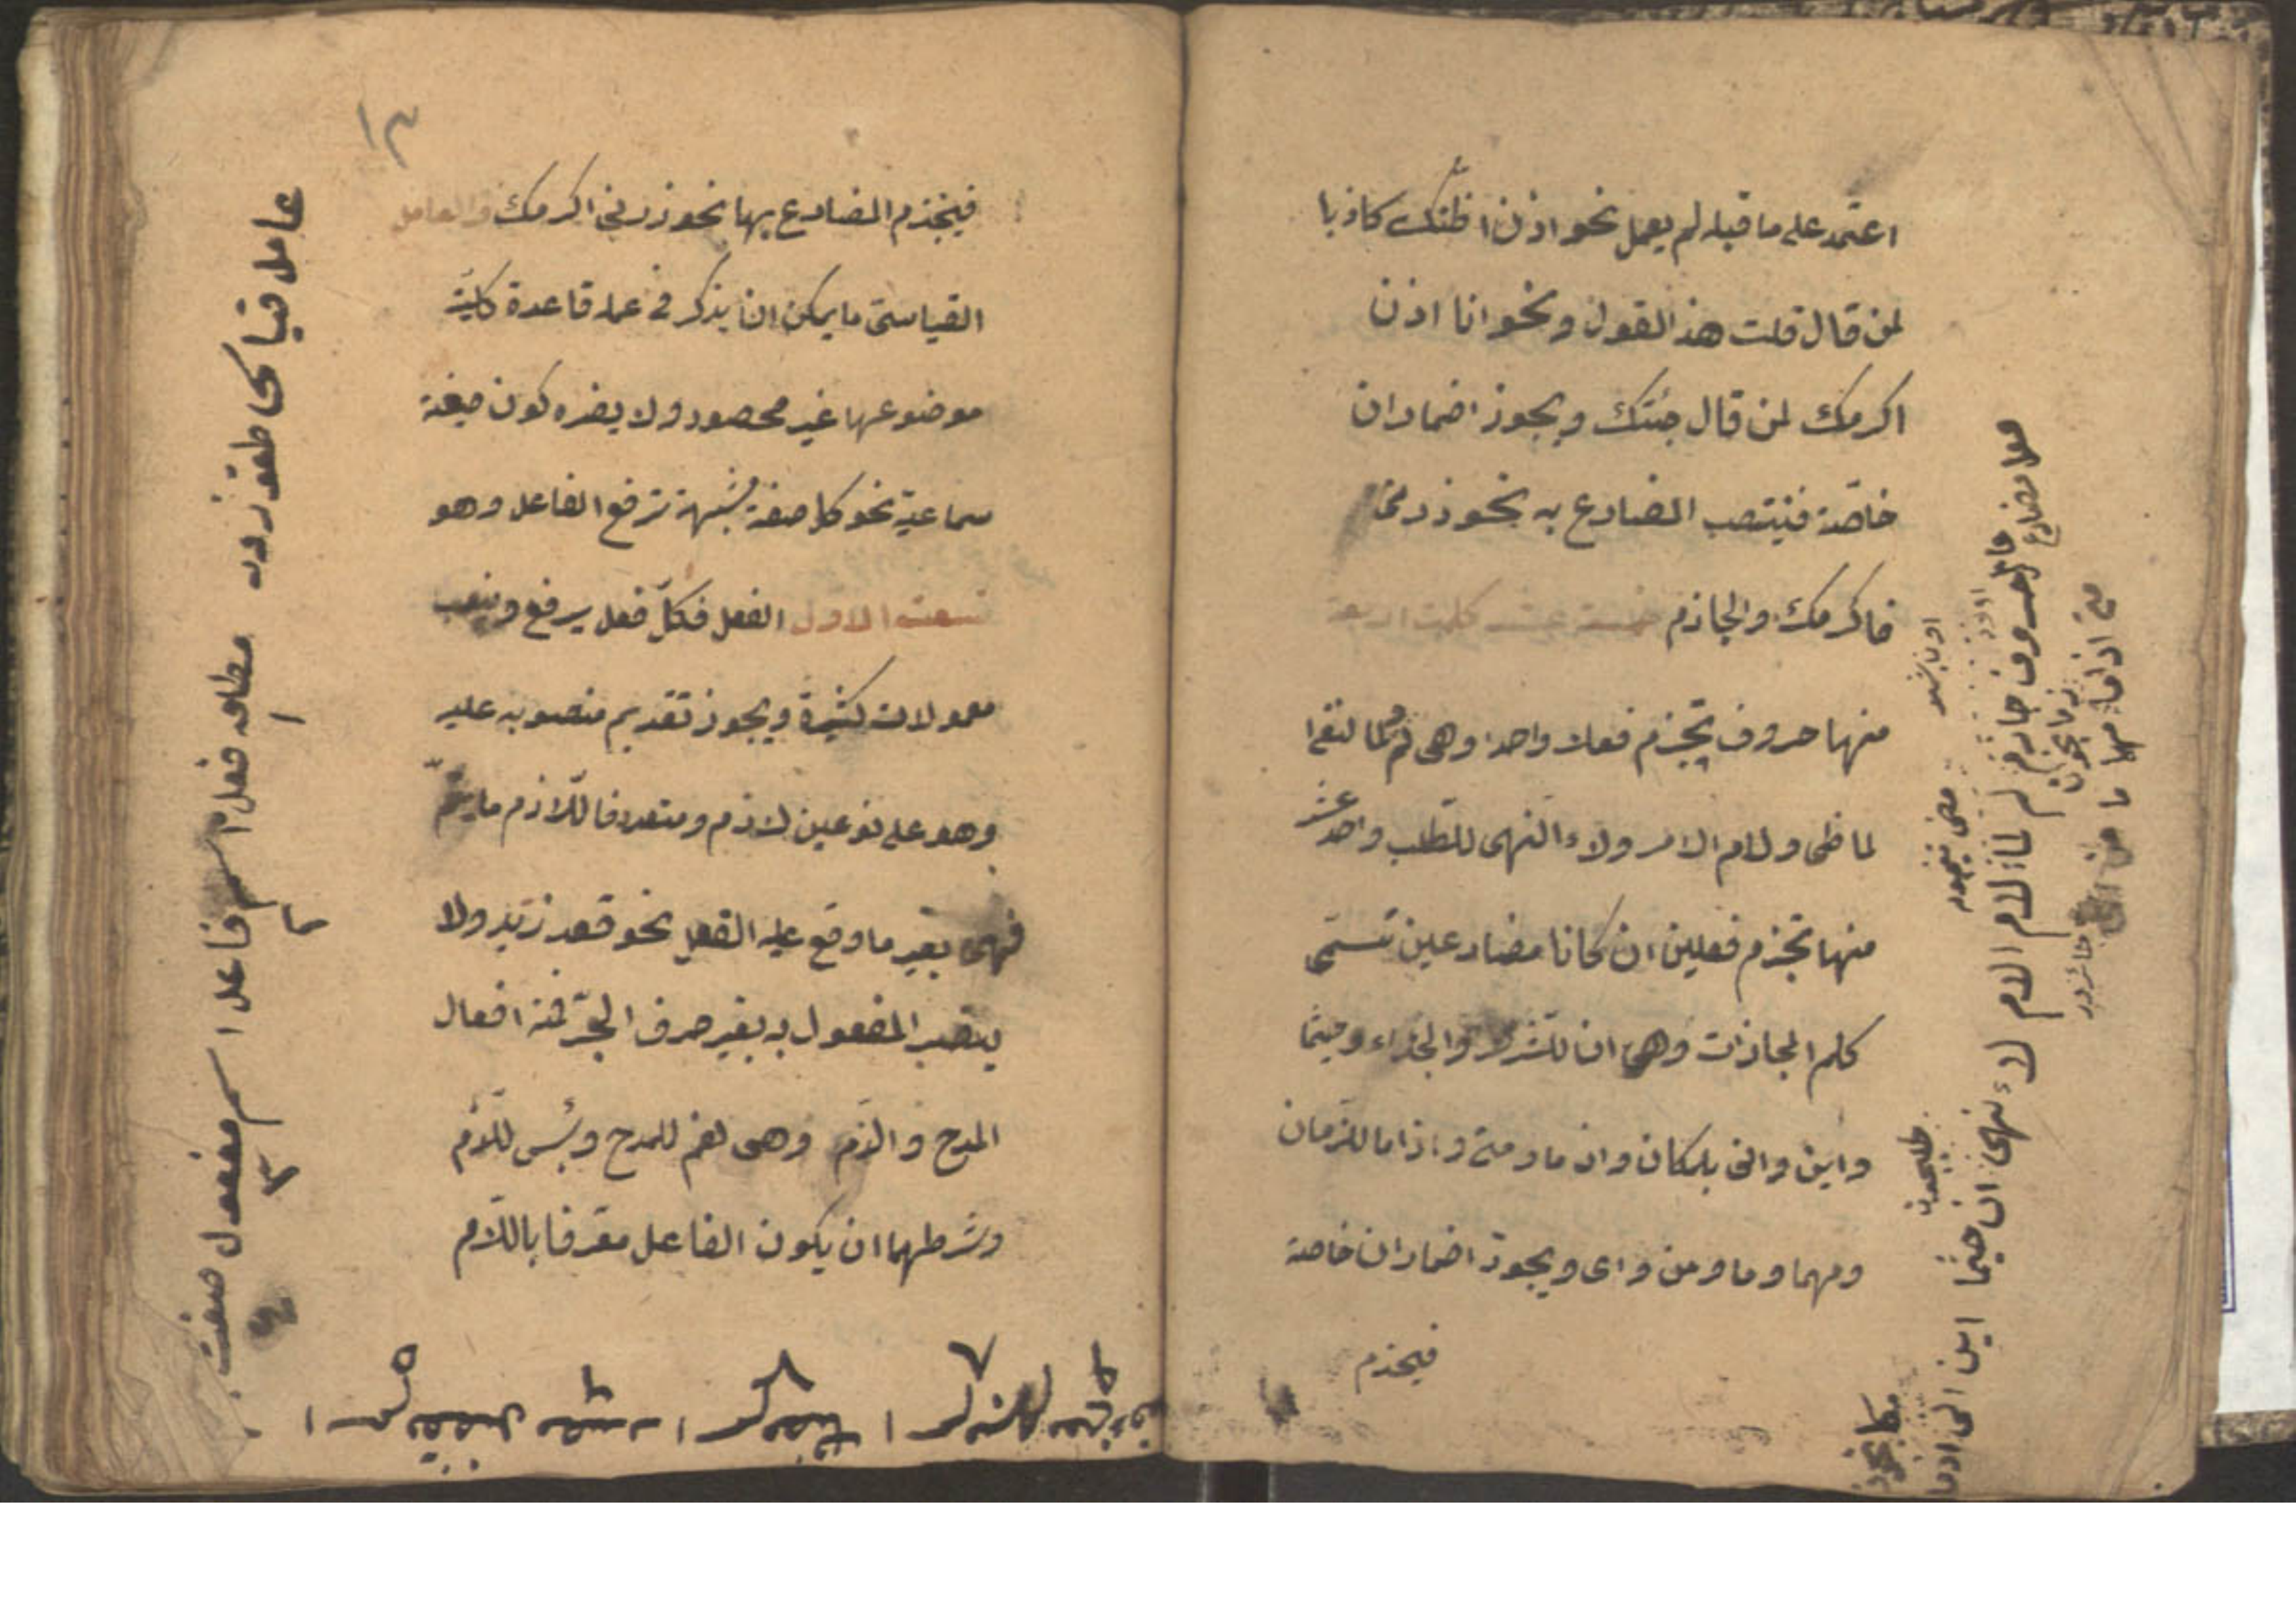 اعتمد على ما قبله لم يعمل نحو اذن اظنك كاذبا
لمن قال قلت هذا القول ونحو انا اذن
اكرمك لمن قال جئتك ويجوز اضمار ان
خاصة فينتصب المضارع به نحو زرني
فاكرمك والجازم خمسة عشر كلمة اربعة
منها حروف تجزم فعلا واحدا وهى لم ولما لنفى
لماضى ولام الامر ولاء النهى للطلب واحد عشر
منها تجزم فعلين ان كانا مضارعين تسمى
كلم المجازات وهى ان للشرط والجزاء وحيثما
واين وانى للمكان واذما ومتى واذاما للزمان
ومهما وما ومن واى ويجوز اضمار ان خاصة
فيجزم
اين انى اذما
لاء نهى ان حيثما
حروف جازم لم لما لام الامر
متى اذاما مهما ما
جائزدر
١٣
فيجزم المضارع بها نحو زرنى اكرمك والعامل
القياسى ما يمكن ان يذكر فى عمله قاعدة كلية
موضوعها غير محصور ولا يضره كون صيغة
سماعية نحو كل صفة مشبهة ترفع الفاعل وهو
تسعة الاول الفعل فكل فعل يرفع وينصب
معمولات كثيرة ويجوز تقديم منصوبه عليه
وهو على نوعين لازم ومتعد فاللازم ما يتم
فهمه بغير ما وقع عليه الفعل نحو قعد زيد ولا
ينصب المفعول به بغير حرف الجر فمنه افعال
المدح والذم وهى نعم للمدح وبئس للذم
وشرطهما ان يكون الفاعل معرفا باللام
عامل قياسى طقوزدر
مطلقه فعل ١ اسم فاعل ٢ اسم مفعول ٣ صفت